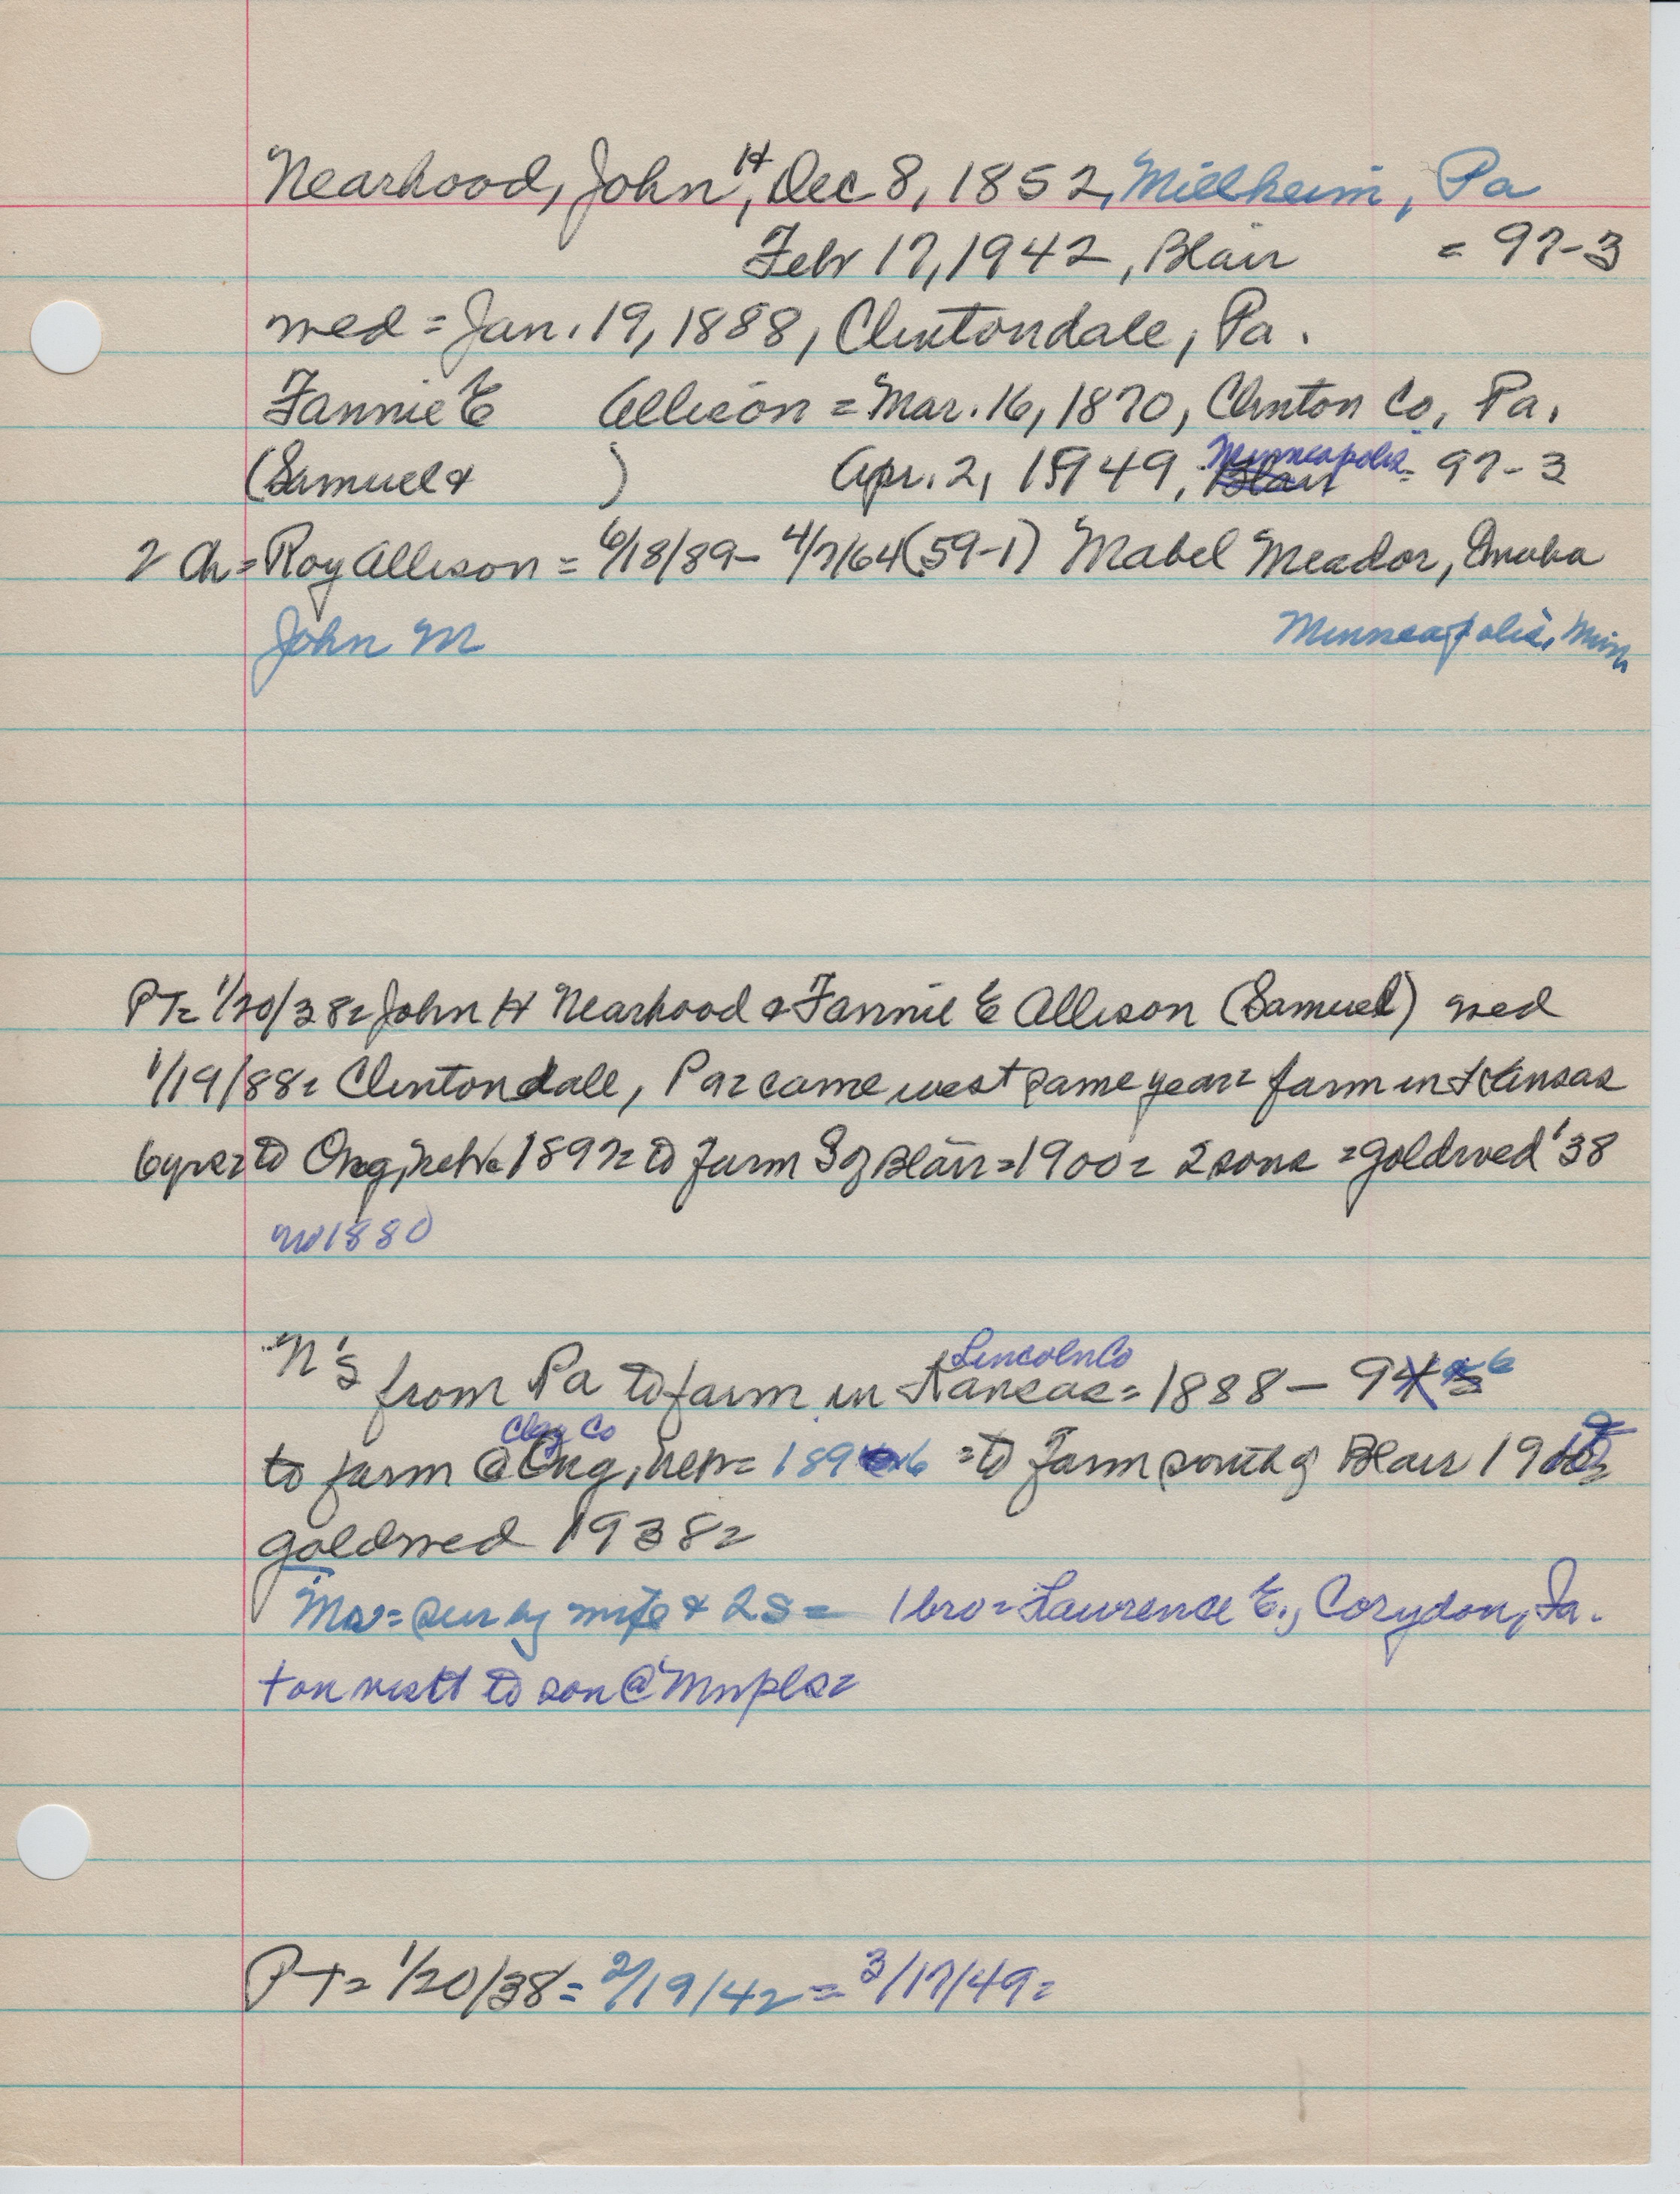 Nearhood, John H, Dec 8, 1852, Millheim, Pa
Febr 17, 1942, Blair = 97-3
med = Jan. 19, 1888, Clintondale, Pa.
Fannie E Allison = Mar. 16, 1870, Clinton Co, Pa.
(Samuel & ) Apr. 2, 1949, Blair Minneapolis = 97-3
2 Ch = Roy Allison = 6/18/89 - 4/7/64 (59-1) Mabel Meador, Omaha
John M Minneapolis, Minn
PT= 1/20/38= John H Nearhood & Fannie E Allison (Samuel) med
1/19/88= Clintondall, Pa= came west same year= farm in Kansas
6 yrs= to Ong, Neb= 1897= to farm S of Blair=1900= 2 sons = goldwed '38
1880
N's from Pa to farm in Lincoln Co Kansas= 1888 - 94 6
to farm @ Ong, Clay Co 189 6 = to farm south of Blair 19
goldwed 1938=
Ma= sur by wife & 2S = 1 bro= Lawrence E., Corydon, Ia.
+ on visit to son @ Mnpls=
PT= 1/20/38= 2/19/42= 3/17/49=